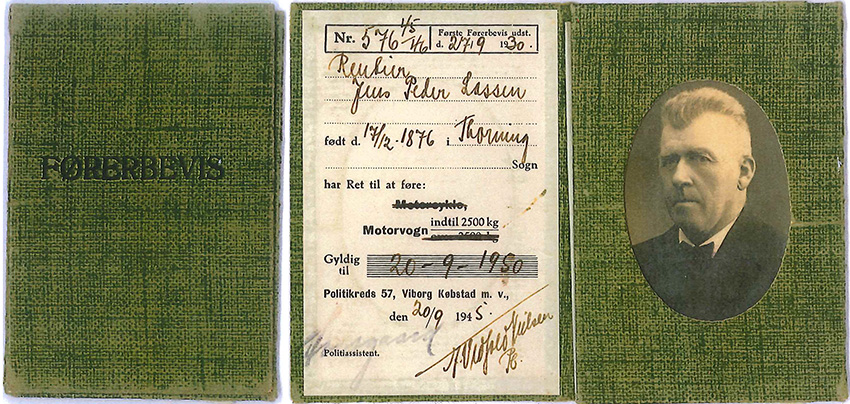 FØRERBEVIS
Nr. 576 1/5 1/6 Første Førerbevis udst.
d. 27/9 1930.
Rentier
Jens Peder Lassen
født d. 17/12. 1876 i Thorning
Sogn
har Ret til at føre:
Motorcykle,
Motorvogn indtil 2500 kg
over 2500 kg
Gyldig til 20-9-1950
Politikreds 57, Viborg Købstad m. v.,
den 20/9 1945.
Politiassistent.